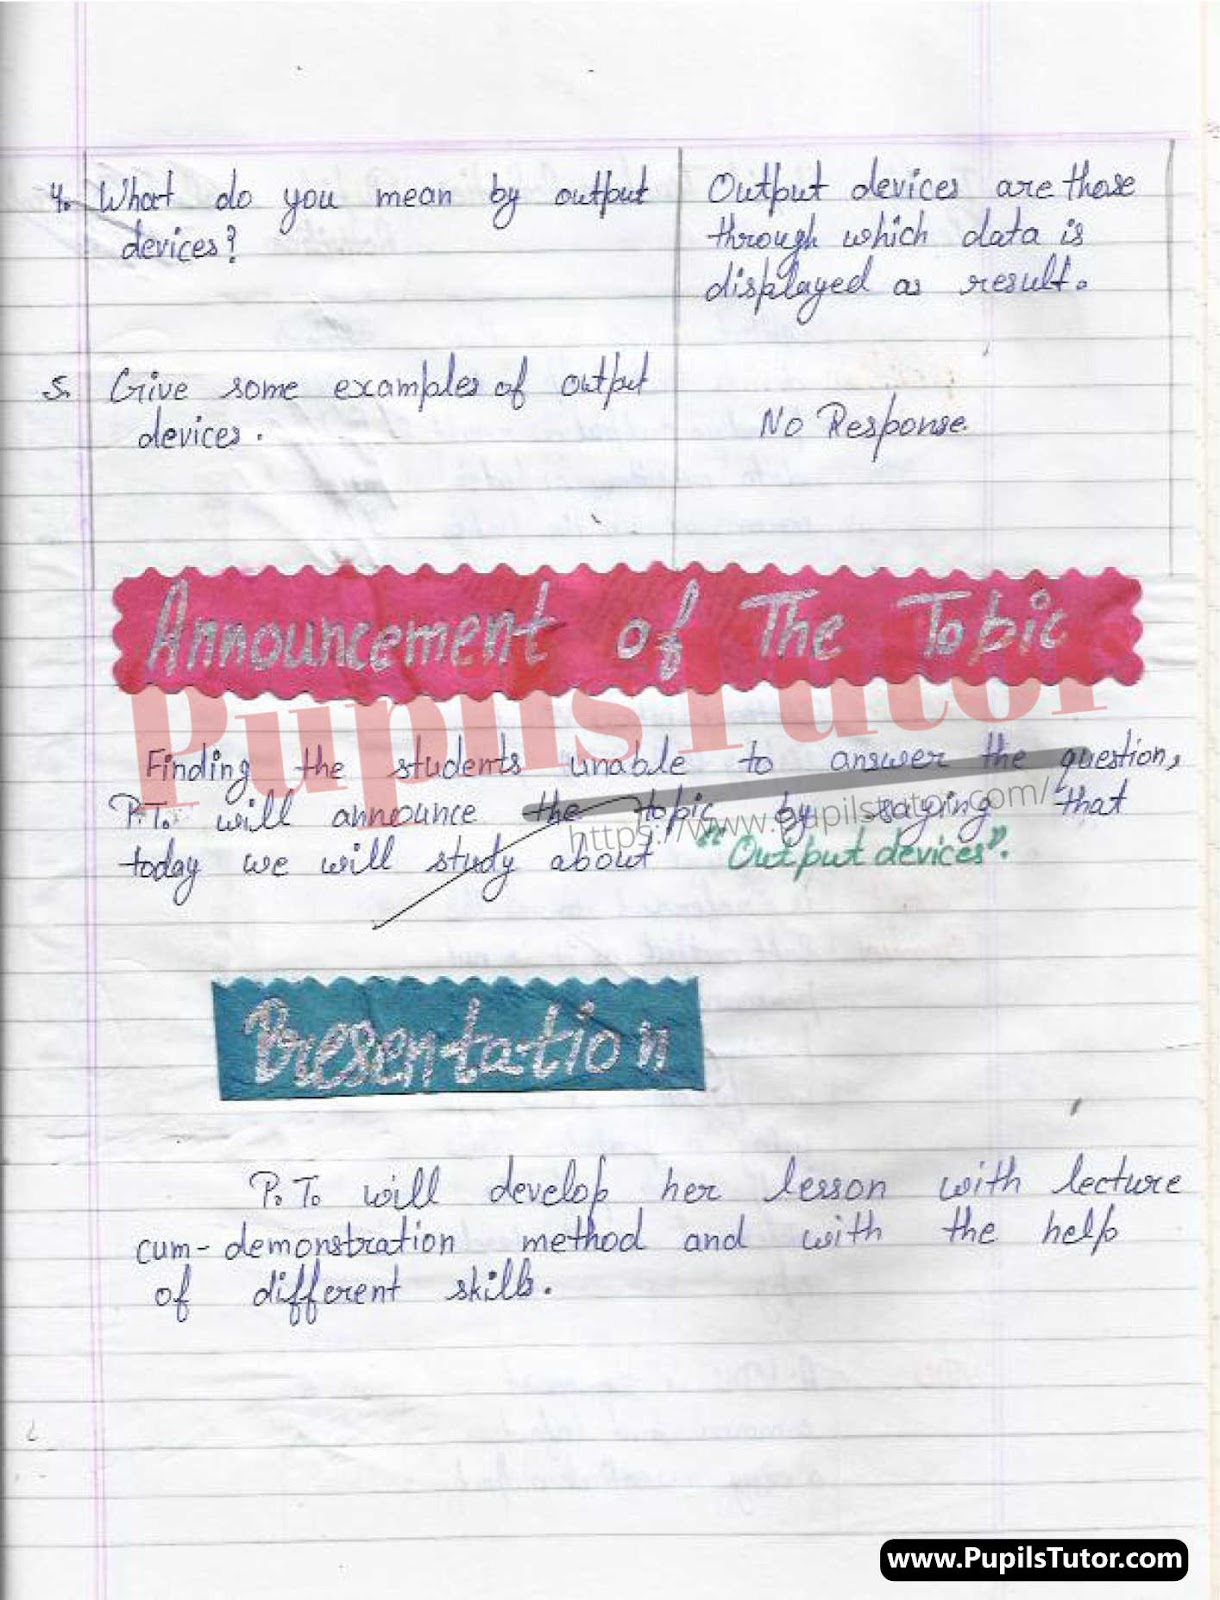 4. What do you mean by output
devices?
Output devices are those
through which data is
displayed as result.
5. Give some examples of output
devices.
No Response
Announcement of The Topic
PupilsTutor
Finding the students unable to answer the question,
P.T. will announce the topic by saying that
https://www.pupilstutor.com/
today we will study about "Output devices".
Presentation
P.T. will develop her lesson with lecture
cum-demonstration method and with the help
of different skills.
www.PupilsTutor.com